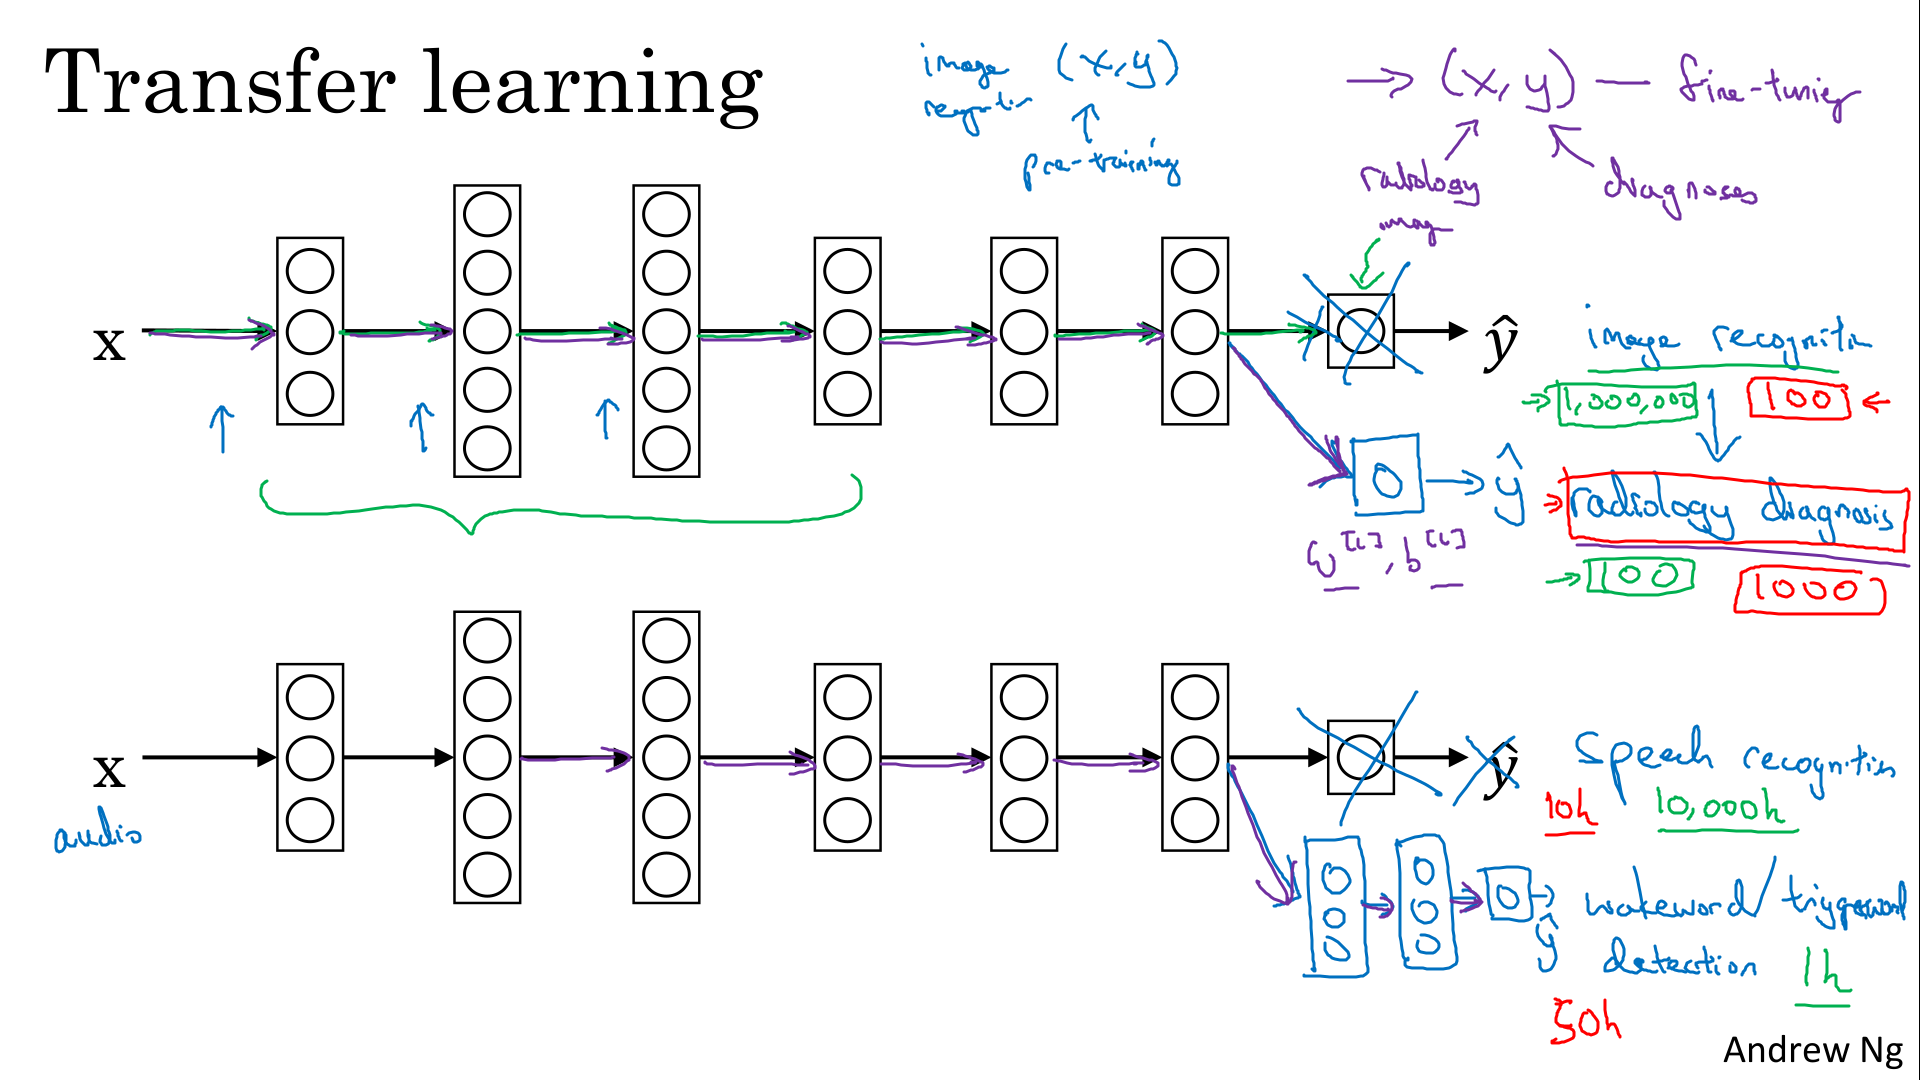 Transfer learning
image (x,y)
recognition
pre-training
→ (x,y) — fine-tuning
radiology
image
diagnoses
x
ŷ
image recognition
→ 1,000,000 100 ←
ŷ
→ radiology diagnosis
w[L], b[L]
→ 100 1000
x
audio
ŷ
speech recognition
10h 10,000h
ŷ
wakeword/triggerword
detection 1h
50h
Andrew Ng